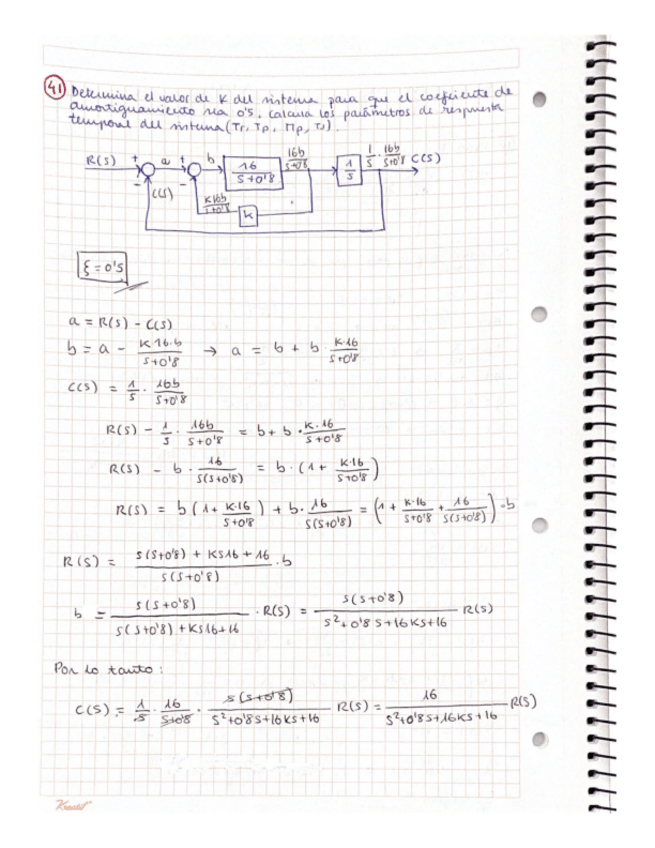 41 Determina el valor de K del sistema para que el coeficiente de
amortiguamiento sea 0'5. Calcula los parámetros de respuesta
temporal del sistema (Tr, Tp, Mp, Ts).
R(S) + a + b 16/(S+0'8) 16b/(S+0'8) 1/S 1/S · 16b/(S+0'8) C(S)
- C(S) - K16b/(S+0'8) K
ξ = 0'5
a = R(S) - C(S)
b = a - K·16·b/(S+0'8) → a = b + b · K·16/(S+0'8)
C(S) = 1/S · 16b/(S+0'8)
R(S) - 1/S · 16b/(S+0'8) = b + b · K·16/(S+0'8)
R(S) - b · 16/(S(S+0'8)) = b · (1 + K·16/(S+0'8))
R(S) = b (1 + K·16/(S+0'8)) + b · 16/(S(S+0'8)) = (1 + K·16/(S+0'8) + 16/(S(S+0'8))) · b
R(S) = (S(S+0'8) + KS16 + 16)/(S(S+0'8)) · b
b = S(S+0'8)/(S(S+0'8) + KS16 + 16) · R(S) = S(S+0'8)/(S²+0'8S+16KS+16) R(S)
Por lo tanto:
C(S) = 1/S · 16/(S+0'8) · S(S+0'8)/(S²+0'8S+16KS+16) R(S) = 16/(S²+0'8S+16KS+16) R(S)